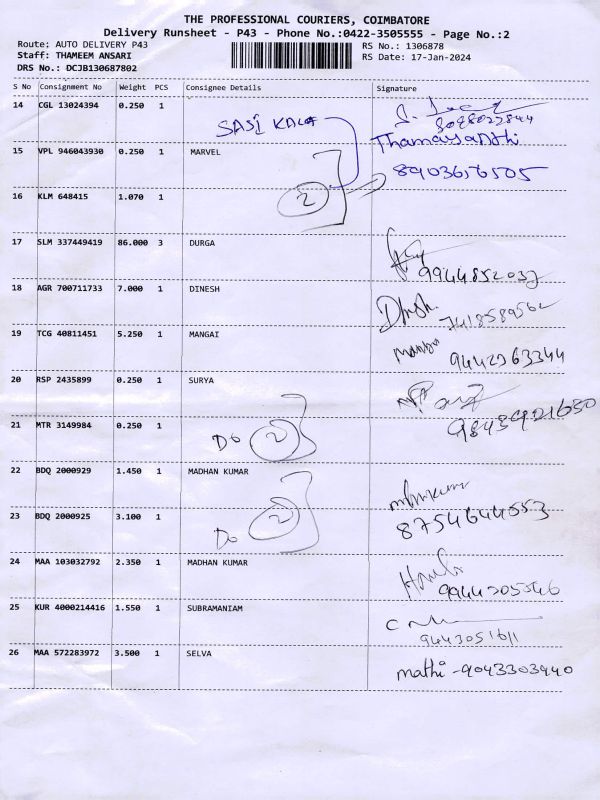 THE PROFESSIONAL COURIERS, COIMBATORE
Delivery Runsheet - P43 - Phone No.:0422-3505555 - Page No.:2
Route: AUTO DELIVERY P43 RS No.: 1306878
Staff: THAMEEM ANSARI RS Date: 17-Jan-2024
DRS No.: DCJB130687802
S No Consignment No Weight PCS Consignee Details Signature
14 CGL 13024394 0.250 1
SASI KALA
Thamayanthi
15 VPL 946043930 0.250 1 MARVEL
8903676505
16 KLM 648415 1.070 1
2
17 SLM 337449419 86.000 3 DURGA
9944852037
18 AGR 700711733 7.000 1 DINESH
7418589562
19 TCG 40811451 5.250 1 MANGAI
9442963344
20 RSP 2435899 0.250 1 SURYA
21 MTR 3149984 0.250 1
Do 2
22 BDQ 2000929 1.450 1 MADHAN KUMAR
23 BDQ 2000925 3.100 1
Do 2 8754644553
24 MAA 103032792 2.350 1 MADHAN KUMAR
9944205546
25 KUR 4000214416 1.550 1 SUBRAMANIAM
26 MAA 572283972 3.500 1 SELVA
mathi - 9043303940